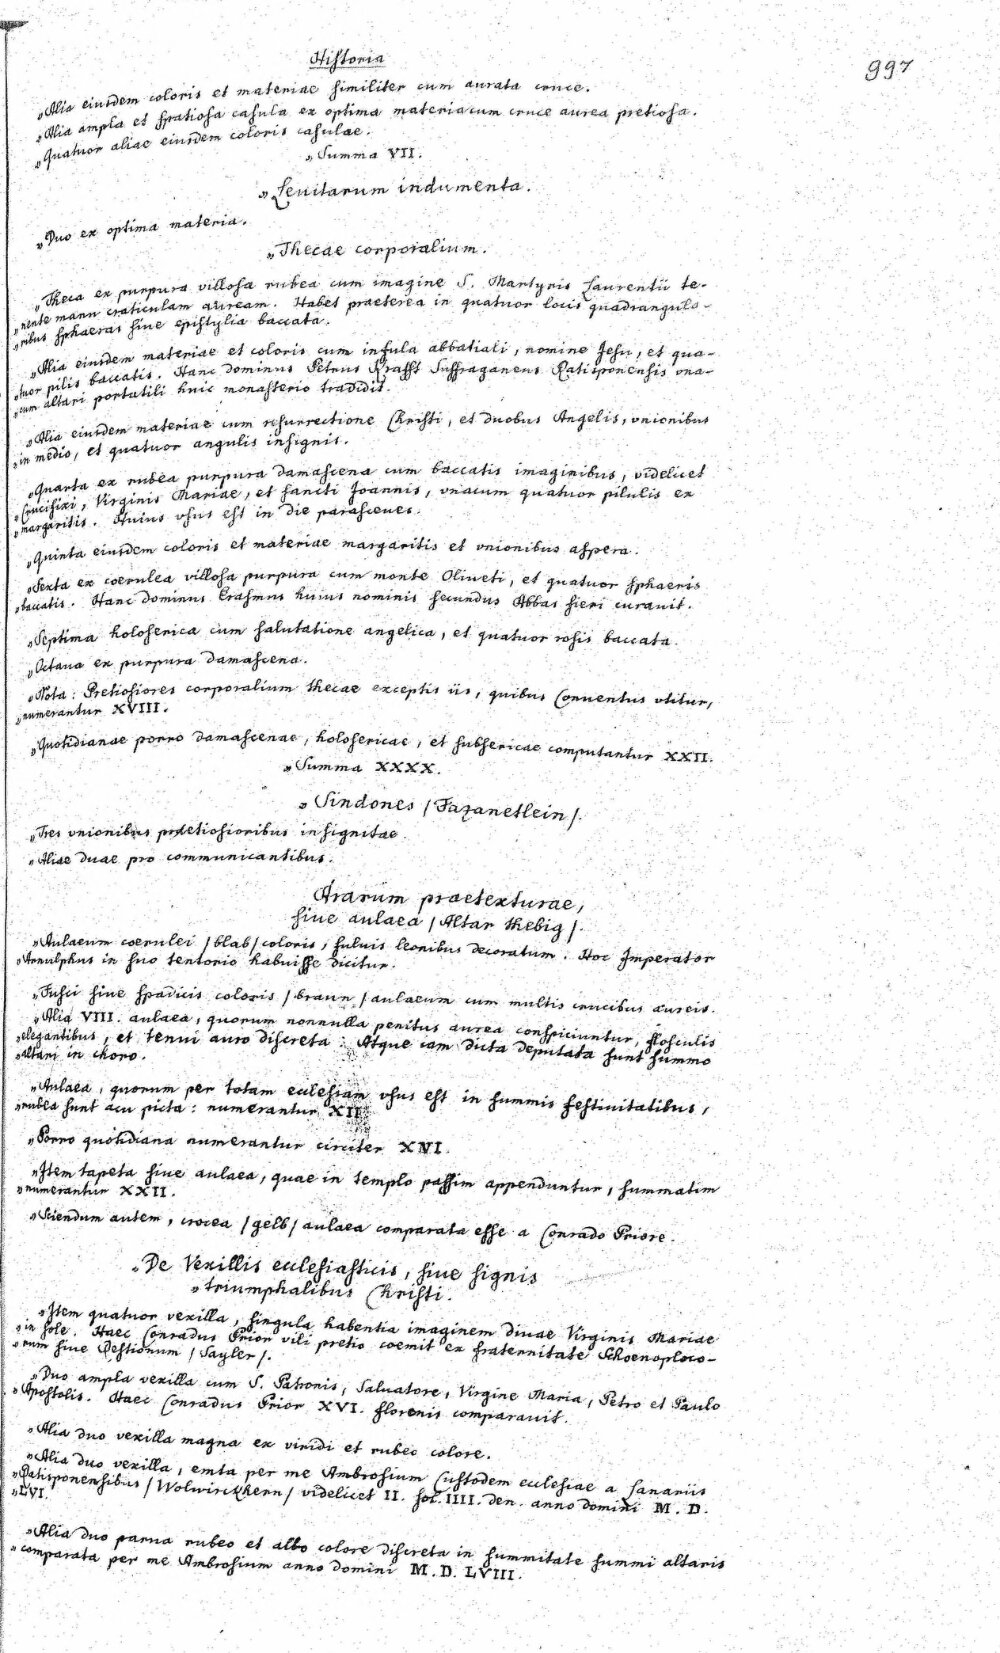 Historia
997
„Alia eiusdem coloris et materiae similiter cum aurata cruce.
„Alia ampla et spatiosa casula ex optima materia cum cruce aurea pretiosa.
„Quatuor aliae eiusdem coloris casulae.
„Summa VII.
„Leuitarum indumenta.
„Duo ex optima materia.
„Thecae corporalium.
„Theca ex purpura villosa rubea cum imagine S. Martyris Laurentii te-
„nente manu craticulam auream. Habet praeterea in quatuor locis quadrangula-
„ribus sphaeras siue epistylia baccata.
„Alia eiusdem materiae et coloris cum infula abbatiali, nomine Jesu, et qua-
„tuor pilis baccatis. Hanc dominus Petrus Krafft Suffraganeus Ratisponensis vna-
„cum altari portatili huic monasterio tradidit.
„Alia eiusdem materiae cum resurrectione Christi, et duobus Angelis, vnionibus
„in medio, et quatuor angulis insignis.
„Quarta ex rubea purpura damascena cum baccatis imaginibus, videlicet
„Crucifixi, Virginis Mariae, et sancti Joannis, vnacum quatuor pilulis ex
„margaritis. Huius vsus est in die parasceues.
„Quinta eiusdem coloris et materiae margaritis et vnionibus aspera.
„Sexta ex coerulea villosa purpura cum monte Oliueti, et quatuor sphaeris
„baccatis. Hanc dominus Erasmus huius nominis secundus Abbas fieri curauit.
„Septima holoserica cum salutatione angelica, et quatuor rosis baccata.
„Octaua ex purpura damascena.
„Nota: Pretiosiores corporalium thecae exceptis iis, quibus Conuentus vtitur,
„numerantur XVIII.
„Quotidianae porro damascenae, holosericae, et subsericae computantur XXII.
„Summa XXXX.
„Sindones / Fazanetlein /.
„Tres vnionibus pretiosioribus insignitae.
„Aliae duae pro communicantibus.
Ararum praetexturae,
siue aulaea / Altar thebig /.
„Aulaeum coerulei / blab / coloris, fuluis leonibus decoratum. Hoc Imperator
„Arnulphus in suo tentorio habuisse dicitur.
„Fusci siue spadicis coloris / braun / aulaeum cum multis crucibus aureis.
„Alia VIII. aulaea, quorum nonnulla penitus aurea conspiciuntur, flosculis
„elegantibus, et tenui auro discreta: Atque iam dicta deputata sunt summo
„altari in choro.
„Aulaea, quorum per totam ecclesiam vsus est in summis festiuitatibus,
„rubea sunt acu picta: numerantur XII
„Porro quotidiana numerantur circiter XVI.
„Item tapeta siue aulaea, quae in templo passim appenduntur, summatim
„numerantur XXII.
„Sciendum autem, crocea / gelb / aulaea comparata esse a Conrado Priore.
„De Vexillis ecclesiasticis, siue signis
„triumphalibus Christi.
„Item quatuor vexilla, singula habentia imaginem diuae Virginis Mariae
„in sole. Haec Conradus Prior vili pretio coemit ex fraternitate Schoenoploco-
„rum siue Restionum / Sayler /.
„Duo ampla vexilla cum S. Patronis, Saluatore, Virgine Maria, Petro et Paulo
„Apostolis. Haec Conradus Prior XVI. florenis comparauit.
„Alia duo vexilla magna ex viridi et rubeo colore.
„Alia duo vexilla, emta per me Ambrosium Custodem ecclesiae a Lanariis
„Ratisponensibus / Wolwirckhern / videlicet II. sol. IIII. den. anno domini M. D.
„LVI.
„Alia duo parua rubeo et albo colore discreta in summitate summi altaris
„comparata per me Ambrosium anno domini M. D. LVIII.